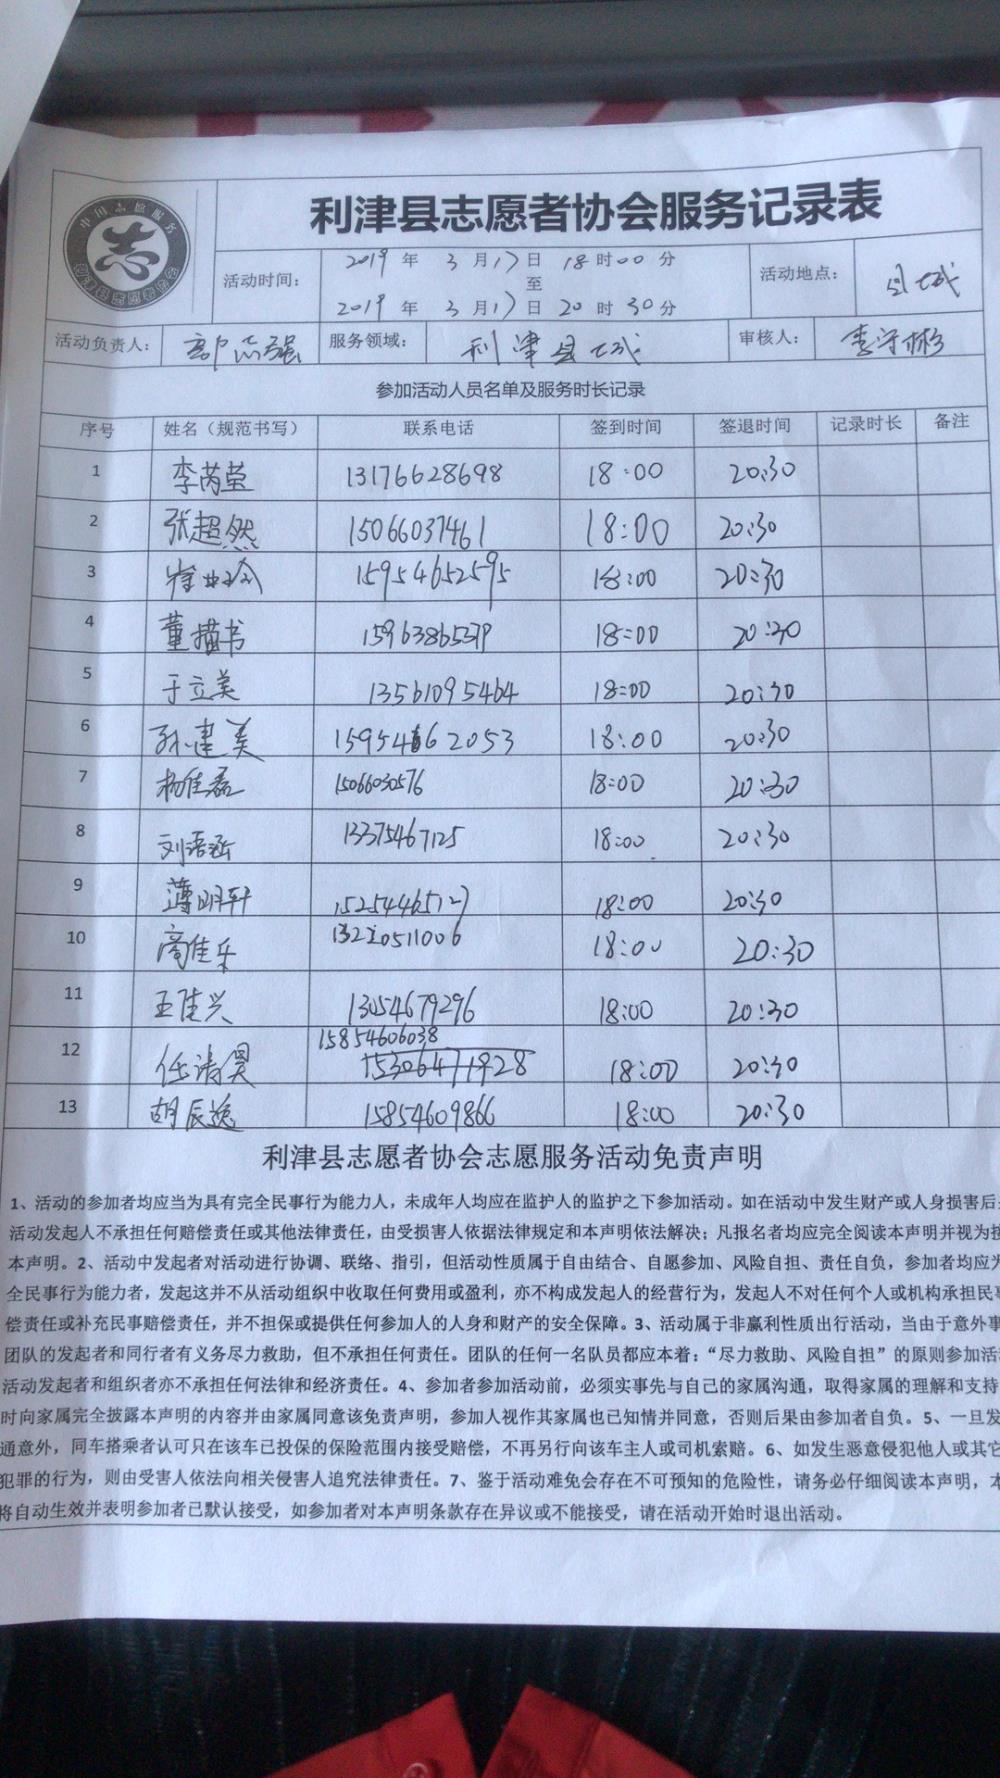 利津县志愿者协会服务记录表
活动时间： 2019 年 3 月 17 日 18 时 00 分
至
2019 年 3 月 17 日 20 时 30 分
活动地点： 县城
活动负责人： 郭志强 服务领域： 利津县城 审核人： 李守彬
参加活动人员名单及服务时长记录
序号 姓名（规范书写） 联系电话 签到时间 签退时间 记录时长 备注
1 李芮莹 13176628698 18:00 20:30
2 张超然 15066037461 18:00 20:30
3 15954652595 18:00 20:30
4 董描书 18:00 20:30
5 于立美 13561095464 18:00 20:30
6 孙建美 18:00 20:30
7 杨佳磊 1506603576 18:00 20:30
8 刘语涵 13375467125 18:00 20:30
9 薄明轩 15254465127 18:00 20:30
10 商佳乐 18:00 20:30
11 王佳兴 13054679296 18:00 20:30
15854606038
12 任清昊 18:00 20:30
13 胡辰逸 15854609866 18:00 20:30
利津县志愿者协会志愿服务活动免责声明
1、活动的参加者均应当为具有完全民事行为能力人，未成年人均应在监护人的监护之下参加活动。如在活动中发生财产或人身损害后
活动发起人不承担任何赔偿责任或其他法律责任，由受损害人依据法律规定和本声明依法解决；凡报名者均应完全阅读本声明并视为
本声明。2、活动中发起者对活动进行协调、联络、指引，但活动性质属于自由结合、自愿参加、风险自担、责任自负，参加者均应为
全民事行为能力者，发起这并不从活动组织中收取任何费用或盈利，亦不构成发起人的经营行为，发起人不对任何个人或机构承担民
偿责任或补充民事赔偿责任，并不担保或提供任何参加人的人身和财产的安全保障。3、活动属于非赢利性质出行活动，当由于意外事
团队的发起者和同行者有义务尽力救助，但不承担任何责任。团队的任何一名队员都应本着：“尽力救助、风险自担”的原则参加活
活动发起者和组织者亦不承担任何法律和经济责任。4、参加者参加活动前，必须实事先与自己的家属沟通，取得家属的理解和支持
时向家属完全披露本声明的内容并由家属同意该免责声明，参加人视作其家属也已知情并同意，否则后果由参加者自负。5、一旦发
通意外，同车搭乘者认可只在该车已投保的保险范围内接受赔偿，不再另行向该车主人或司机索赔。6、如发生恶意侵犯他人或其它
犯罪的行为，则由受害人依法向相关侵害人追究法律责任。7、鉴于活动难免会存在不可预知的危险性，请务必仔细阅读本声明，本
将自动生效并表明参加者已默认接受，如参加者对本声明条款存在异议或不能接受，请在活动开始时退出活动。